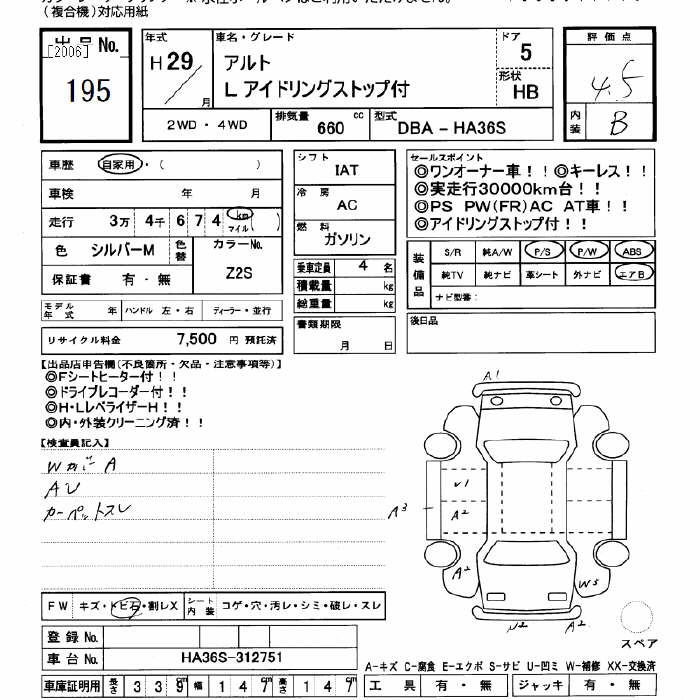 (複合機)対応用紙
出品 No.
[2006]
195
年式
H29
月
車名・グレード
アルト
L アイドリングストップ付
ドア
5
形状
HB
評価点
4.5
内装
B
2WD・4WD
排気量
660 cc
型式
DBA - HA36S
車歴 自家用・( )
車検 年 月
走行 3万 4千 6 7 4 km マイル ( )
色 シルバーM
色替
カラーNo.
Z2S
保証書 有・無
モデル年式 年
ハンドル 左・右
ディーラー・並行
リサイクル料金 7,500 円 預託済
シフト
IAT
冷房
AC
燃料
ガソリン
乗車定員 4 名
積載量 kg
総重量 kg
書類期限
月 日
セールスポイント
◎ワンオーナー車!!◎キーレス!!
◎実走行30000km台!!
◎PS PW(FR)AC AT車!!
◎アイドリングストップ付!!
装備品
S/R 純A/W P/S P/W ABS
純TV 純ナビ 革シート 外ナビ エアB
ナビ型番:
後日品
【出品店申告欄(不良箇所・欠品・注意事項等)】
◎Fシートヒーター付!!
◎ドライブレコーダー付!!
◎H・LレベライザーH!!
◎内・外装クリーニング済!!
【検査員記入】
WガラA
AU
カーペットスレ
A1
U1
A2
A3
A2
W3
U2
A2
スペア
FW キズ・トビ石・割レX
シート内装 コゲ・穴・汚レ・シミ・破レ・スレ
登録 No.
車台 No. HA36S-312751
車庫証明用 長さ 3 3 9 cm 幅 1 4 7 cm 高さ 1 4 7 cm
A-キズ C-腐食 E-エクボ S-サビ U-凹ミ W-補修 XX-交換済
工具 有・無
ジャッキ 有・無